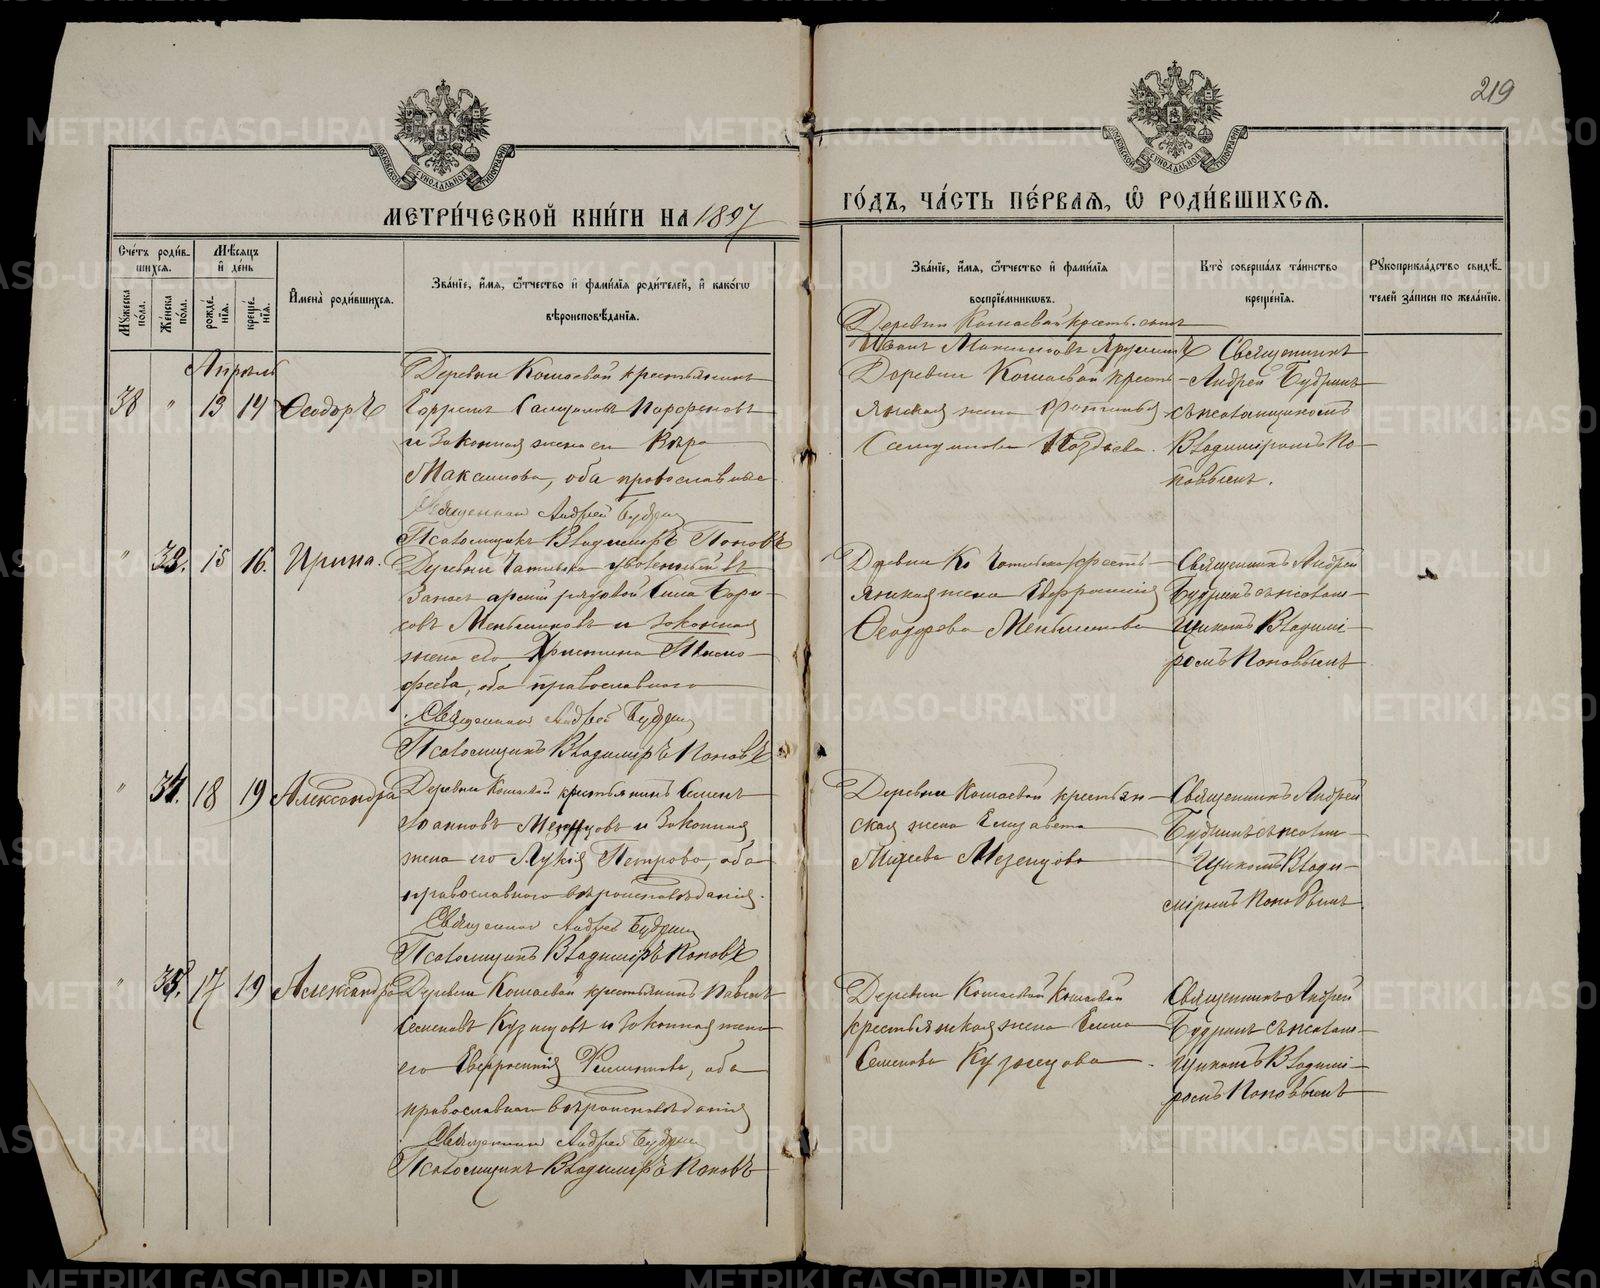 219
МОСКОВСКОЙ СУНОДАЛЬНОЙ ТИПОГРАФІИ
МОСКОВСКОЙ СУНОДАЛЬНОЙ ТИПОГРАФІИ
МЕТРИ́ЧЕСКОЙ КНИ́ГИ НА 1897
ГО́ДЪ, ЧА́СТЬ ПЕ́РВАѦ, Ѽ РОДИ́ВШИХСѦ.
Сче́тъ роди́в-
шихсѧ.
Мѣ́сѧцъ
и҆ де́нь
Мꙋ́жеска по́ла.
Же́нска по́ла.
рожде́-
нїѧ.
креще́-
нїѧ.
И҆мена̀ роди́вшихсѧ.
Зва́нїе, и҆́мѧ, ѻ҆́тчество и҆ фами́лїѧ роди́телей, и҆ како́гѡ
вѣроисповѣ́данїѧ.
Зва́нїе, и҆́мѧ, ѻ҆́тчество и҆ фами́лїѧ
воспрїе́мникѡвъ.
Кто̀ соверша́лъ та́инство
креще́нїѧ.
Рꙋкоприкла́дство свидѣ́-
телей за́писи по жела́нїю.
Апрѣль
38 " 13 14 Ѳеодоръ
Деревни Кошаевой крестьянинъ
Самуиловъ Парфеновъ
и законная жена его Вѣра
Максимова, оба православные
Священникъ Андрей Будринъ
Псаломщикъ Владимиръ Поповъ
Деревни Кошаевой крест. сынъ
Иванъ
Деревни Кошаевой кресть-
янская жена
Самуилова
Священникъ
Андрей Будринъ
съ псаломщикомъ
Владимиромъ По-
повымъ.
" 15 16. Ирина.
Деревни уволенный въ
запасъ арміи рядовой Сила Бори-
совъ Меньшиковъ и законная
жена его Христина Тимо-
феева, оба православнаго
Священникъ Андрей Будринъ
Псаломщикъ Владимиръ Поповъ
Деревни кресть-
янская жена Евфросинія
Ѳеодорова Меньшикова
Священникъ Андрей
Будринъ съ псалом-
щикомъ Владими-
ромъ Поповымъ
" 34. 18 19 Александра
Деревни Кошаевой крестьянинъ Семенъ
Іоанновъ Мезенцовъ и законная
жена его Лукія Петрова, оба
православнаго вѣроисповѣданія.
Священникъ Андрей Будринъ
Псаломщикъ Владимиръ Поповъ
Деревни Кошаевой крестьян-
ская жена Елизавета
Мезенцова
Священникъ Андрей
Будринъ съ псалом-
щикомъ Влади-
міромъ Поповымъ
" 35. 17 19 Александра
Деревни Кошаевой крестьянинъ Павелъ
Семеновъ Кузнецовъ и законная жена
его Евфросинія Филиппова, оба
православнаго вѣроисповѣданія
Священникъ Андрей Будринъ
Псаломщикъ Владимиръ Поповъ
Деревни Кошаевой Кошаевой
крестьянская жена Елена
Семенова Кузнецова
Священникъ Андрей
Будринъ съ псалом-
щикомъ Владими-
ромъ Поповымъ
METRIKI.GASO-URAL.RU